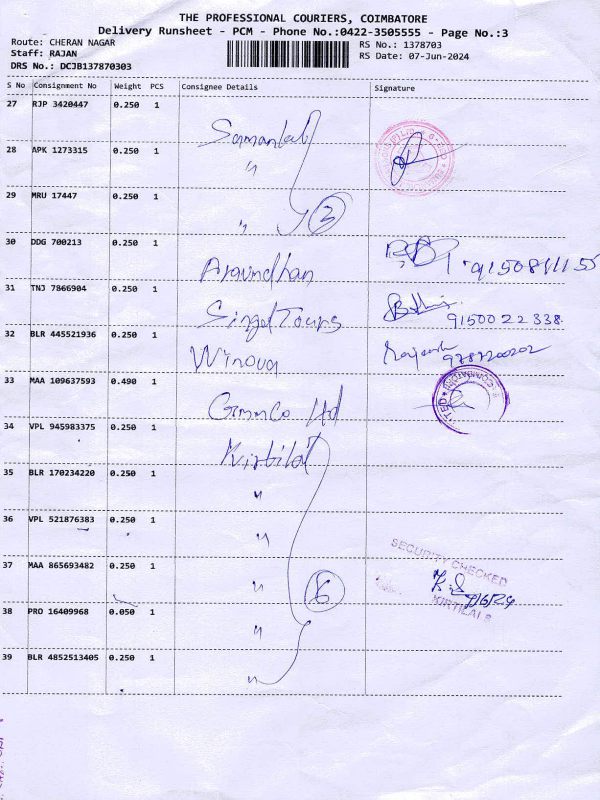 THE PROFESSIONAL COURIERS, COIMBATORE
Delivery Runsheet - PCM - Phone No.:0422-3505555 - Page No.:3
Route: CHERAN NAGAR RS No.: 1378703
Staff: RAJAN RS Date: 07-Jun-2024
DRS No.: DCJB137870303
S No Consignment No Weight PCS Consignee Details Signature
27 RJP 3420447 0.250 1
28 APK 1273315 0.250 1 "
29 MRU 17447 0.250 1 " 3
30 DDG 700213 0.250 1 Aravindhan
31 TNJ 7866904 0.250 1 Singel Tours 9150022338
32 BLR 445521936 0.250 1 Winova Rajesh 9787200202
33 MAA 109637593 0.490 1 Gmmco ltd
34 VPL 945983375 0.250 1 Kirtilal
35 BLR 170234220 0.250 1 "
36 VPL 521876383 0.250 1 "
37 MAA 865693482 0.250 1 " 6 SECURITY CHECKED
KIRTILALS
38 PRO 16409968 0.050 1 "
39 BLR 4852513405 0.250 1 "